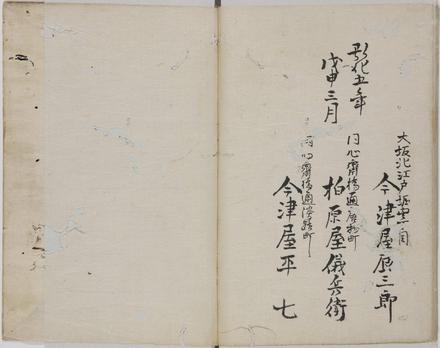 大坂北江戸堀壱丁目
今津屋辰三郎
同心斎橋通唐物町
柏原屋儀兵衛
同心斎橋通淡路町
今津屋平七
弘化五年
戊申三月